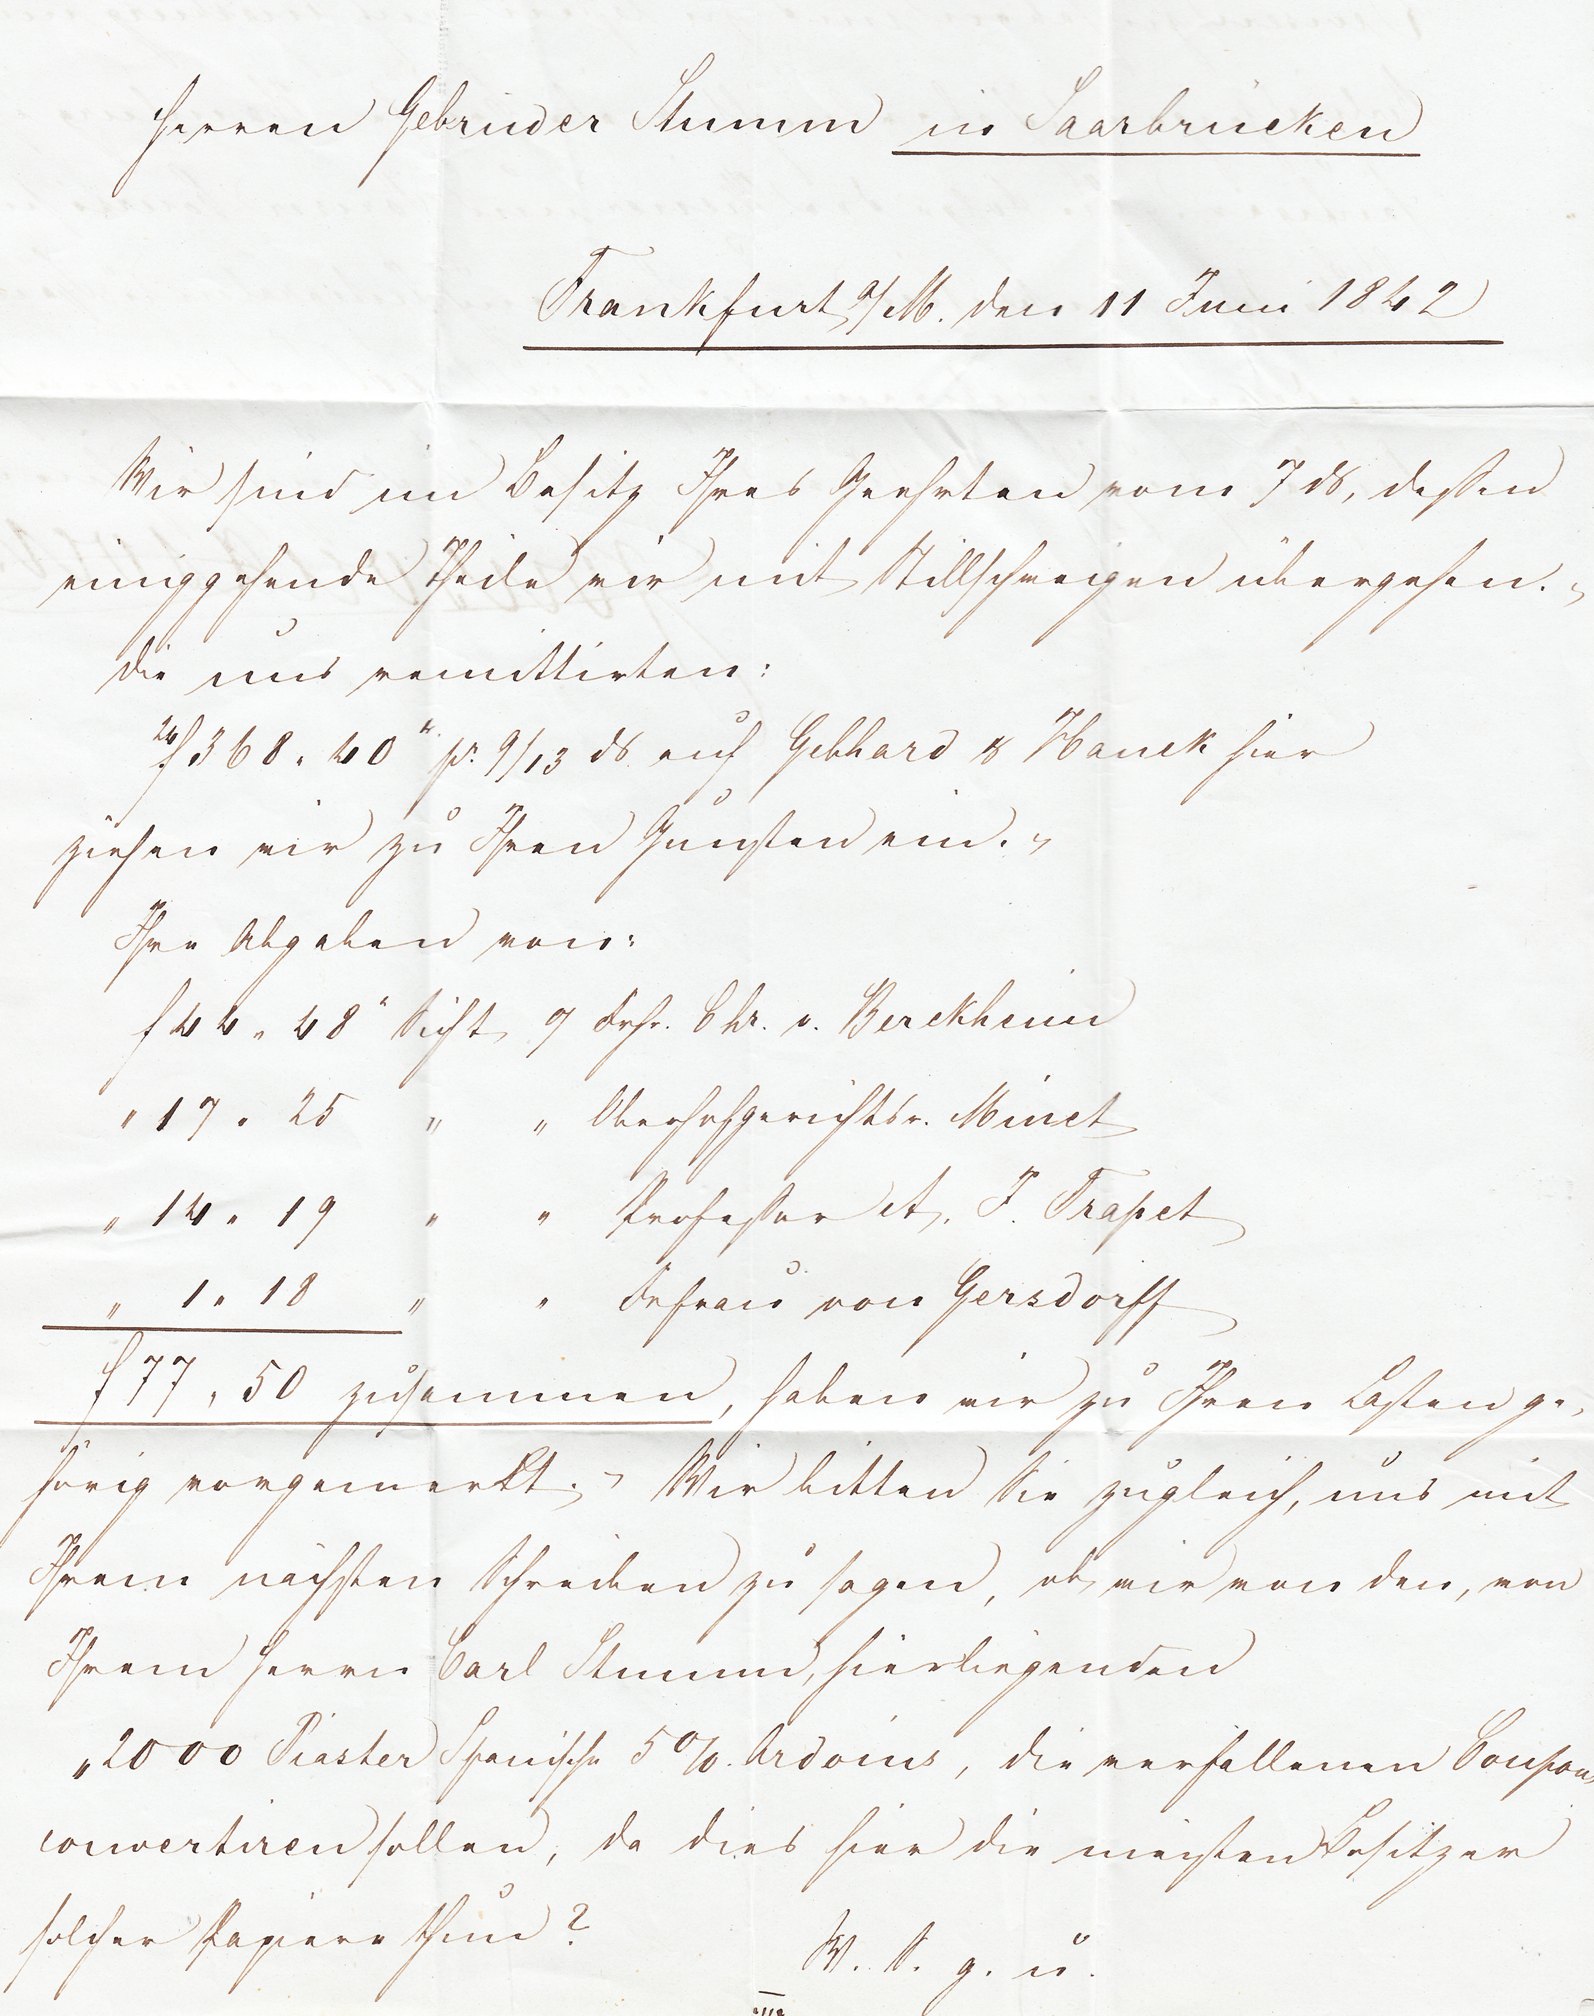 Herren Gebrüder Stumm in Saarbrücken
Frankfurt a/M. den 11 Juni 1842
Wir sind im Besitz Ihres Geehrten vom 7 ds, deßen
einiggehende Theile wir mit Stillschweigen übergehen. -
Die uns remittirten:
f 368. 40 pr. 9/13 ds auf Gebhard & Hauck hier
ziehen wir zu Ihren Gunsten ein. -
Ihre Abgaben von:
f 44. 48 Sicht Frhr. Chr. v. Berckheim
" 17. 25 " " Oberhofgerichtsr. Minet
" 14. 19 " " Professor A. F. Trapet
" 1. 18 " " Frfrau von Gersdorff
f 77. 50 zusammen, haben wir zu Ihren Lasten ge-
hörig vorgemerkt. - Wir bitten Sie zugleich, uns mit
Ihrem nächsten Schreiben zu sagen, ob wir von den, von
Ihrem Herrn Carl Stumm, hierliegenden
"2000 Piaster Spanische 5%. Ardoins, die verfallenen Coupons
convertiren sollen, da dies hier die meisten Besitzer
solcher Papiere thun?
W. S. g. ü.